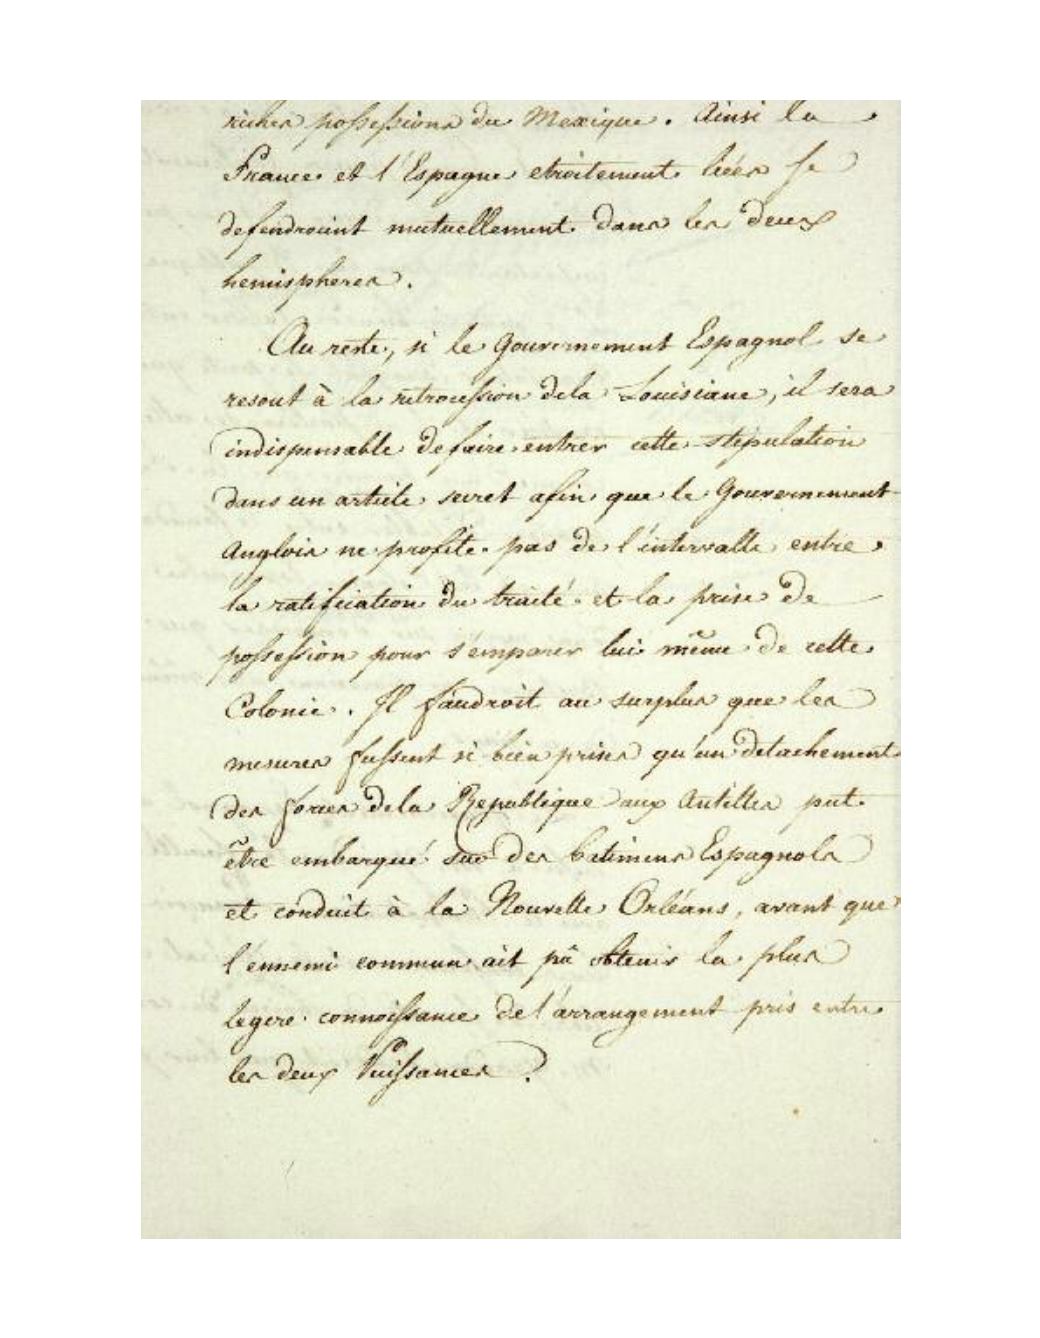 riches possessions du Mexique. Ainsi la
France et l'Espagne etroitement liées se
defendroient mutuellement dans les deux
hemispheres.
Au reste, si le Gouvernement Espagnol se
resout à la retrocession dela Louisiane, il sera
indispensable de faire entrer cette stipulation
dans un article secret afin que le Gouvernement
Anglois ne profite pas de l'intervalle entre
la ratification du traité et la prise de
possession pour s'emparer lui même de cette
Colonie. Il faudroit au surplus que les
mesures fussent si bien prises qu'un detachement
des forces dela Republique aux Antilles put
être embarqué sur des batimens Espagnols
et conduit à la Nouvelle Orléans, avant que
l'ennemi commun ait pû obtenir la plus
legere connoissance de l'arrangement pris entre
les deux Puissances.